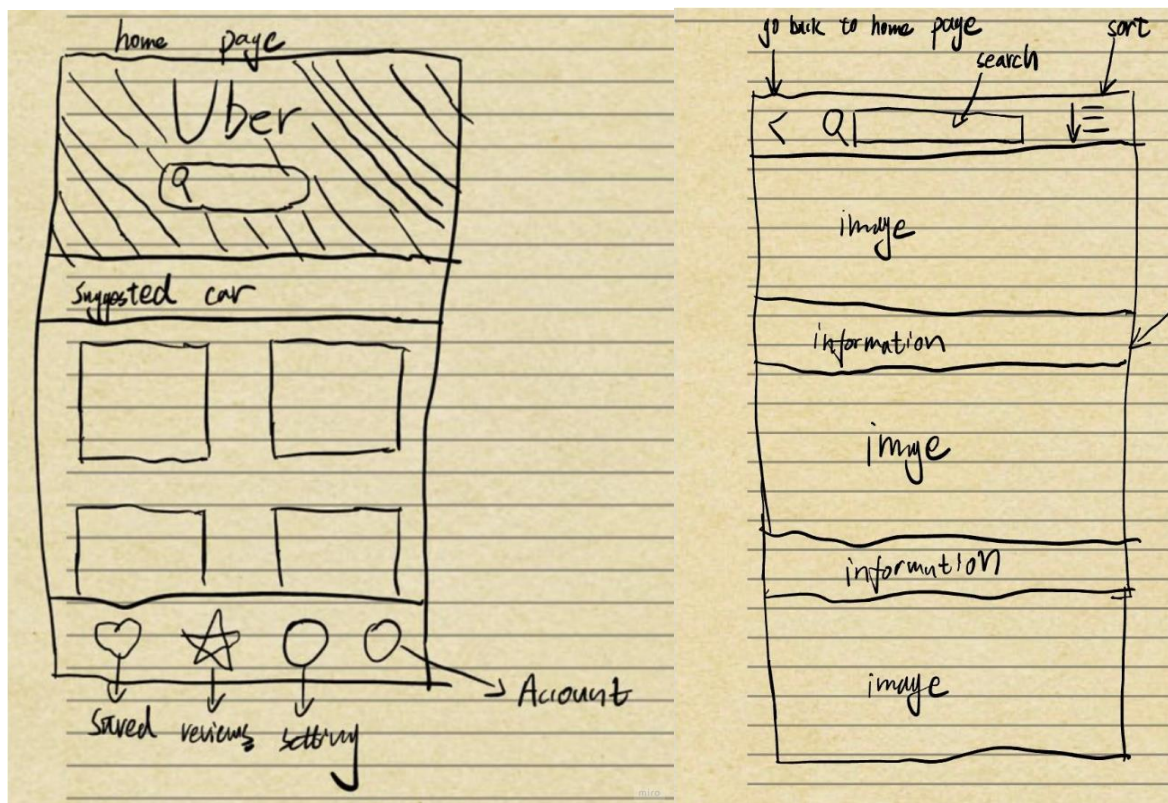 home page
Uber
Suggested car
Saved
reviews
setting
Account
miro
go back to home page
sort
search
image
information
image
information
image